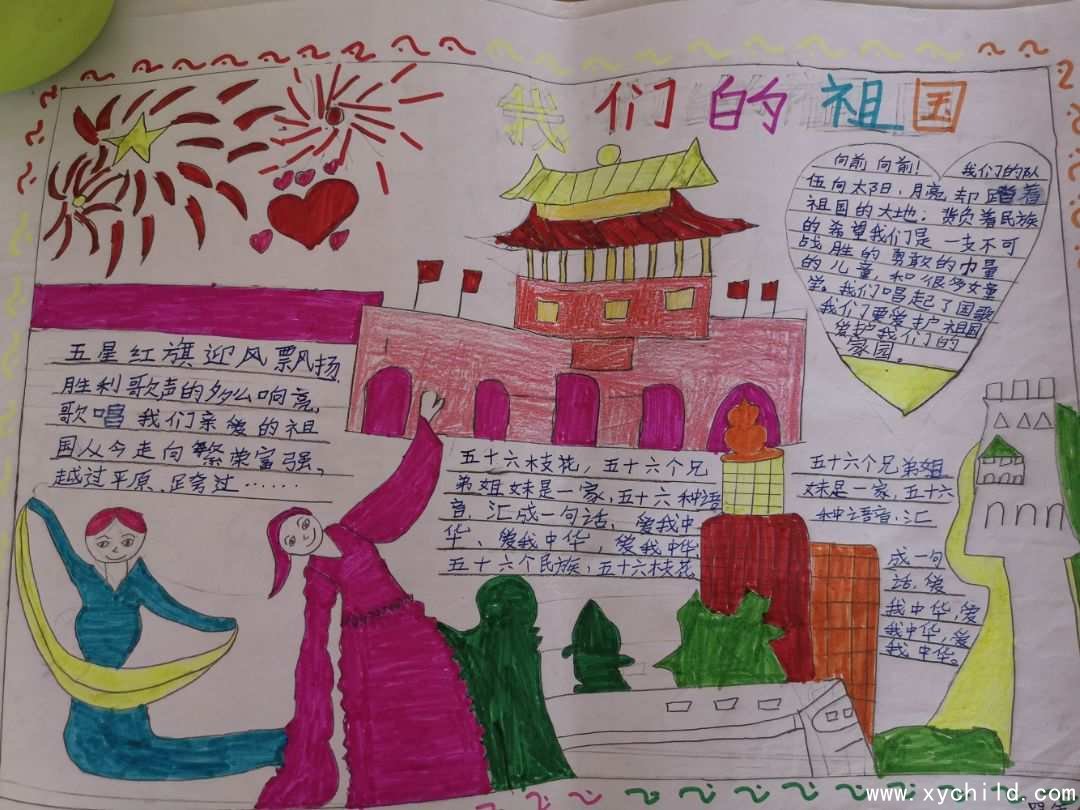 我们的祖国
向前 向前！ 我们的队
伍向太阳，月亮 却踏着
祖国的大地；背负着民族
的希望我们是一支不可
战胜的勇敢的力量
的儿童，和很多女童
学。我们唱起了国歌
我们要爱护祖国
爱护我们的
家园。
五星红旗迎风飘扬
胜利歌声的多么响亮，
歌唱我们亲爱的祖
国从今走向繁荣富强。
越过平原，跨过……
五十六枝花，五十六个兄
弟姐妹是一家，五十六种语
言，汇成一句话，爱我中
华、爱我中华，爱我中华
五十六个民族，五十六枝花
五十六个兄弟姐
妹是一家，五十六
种语言，汇
成一句
话，爱
我中华，爱
我中华，爱
我中华。
www.xychild.com